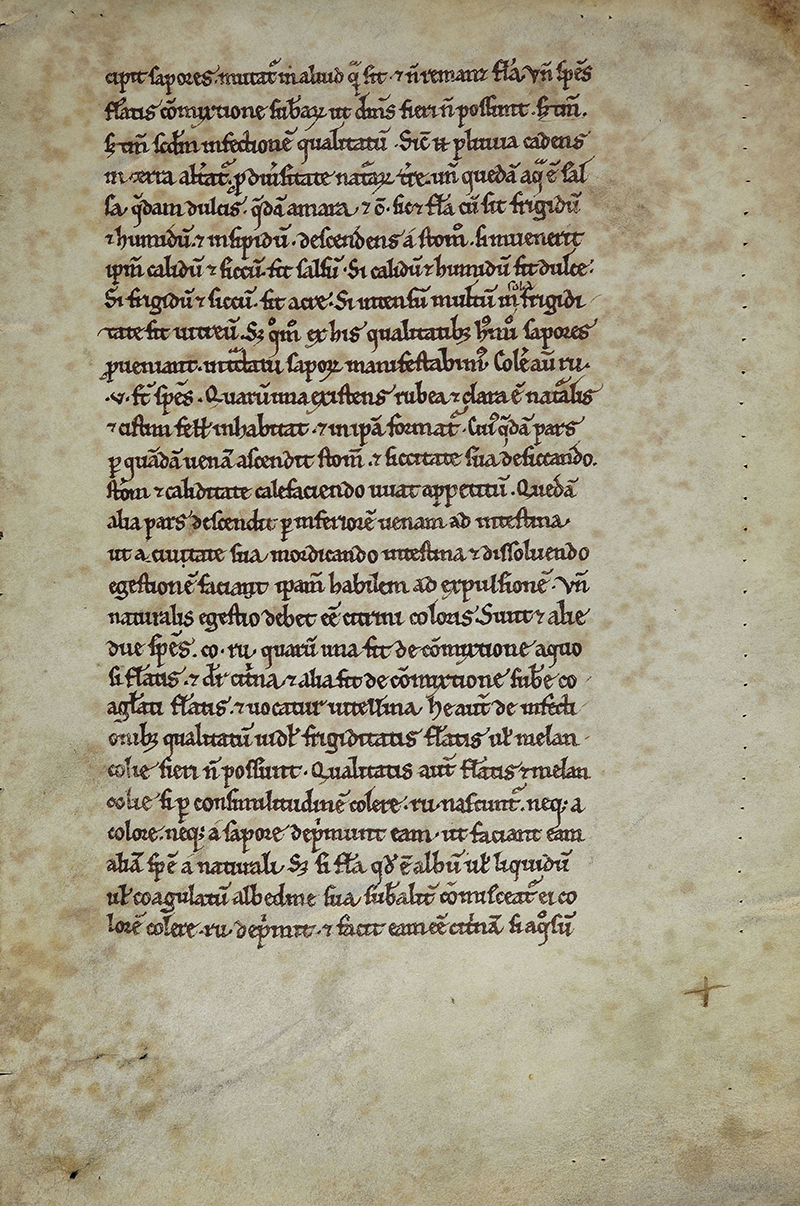 cipit sapores. mutat̉ in aliud qͣ sit. ⁊ ñ remanꝫ fl̃a. vñ sp̃es
fl̃atis cõmixtione sub̃aꝝ ut dix̃ fieri ñ possunt. sꝫ tm̃.
sꝫ tm̃ scd̃m infectionẽ qualitatũ. Sic̃ pluuia cadens
in terra alt̃at̉. ꝓ diũsitate nat̃aꝝ tr̃e. uñ quedã aq̃ ẽ sal
sa. q̃dam dulcis. q̃dã amara. ⁊ c̃. sic ⁊ fl̃a cũ sit frigidũ
⁊ humidũ. ⁊ insipidũ. descendens a stom̊. si inuenerit
ip̃m calidũ ⁊ siccũ. fit salsũ. Si calidũ ⁊ humidũ fit dulce.
Si frigidũ ⁊ siccũ. fit acre. Si intensũ multũ in frigidi
tate fit uitreũ. Sꝫ qm̊ ex his qualitatibꝫ hm̊i sapores
ꝓueniant. in sapoꝝ manifestabim̉. Coleᷓ aũ ru.
.v. st̃ sp̃es. Quarũ una existens rubea ⁊ clara ẽ nat̃alis
⁊ cistim fell̃ inhabitat. ⁊ in ip̃a format̉. Cuı̉ q̃dã pars
ꝑ quãdã uenã ascendit stom̃. ⁊ siccitate sua desiccando.
stom̃ ⁊ caliditate calefaciendo iuuat appetitũ. Quedã
alia pars descendit ꝑ inferiorẽ uenam ad intestina.
ut acuitate sua mordicando intestina ⁊ dissoluendo
egestionẽ faciant ipam̃ habilem ad expulsionẽ. Vñ
naturalis egestio debet eẽ citrini coloris. Sunt ⁊ alie
due sp̃es. co. ru. quarũ una fit de cõmixtione aquo
si fl̃atis. ⁊ dr̃ cit̃na. ⁊ alia fit de cõmixtione sub̃e co
aglãti fl̃atis. ⁊ uocatur uitellina. he aut̃ de infecti
onibꝫ qualitatũ uidꝫ frigiditatis fl̃atis ul̃ melan
colie fieri ñ possunt. Qualitatis aut̃ fl̃atis ⁊ melan
colie si ꝑ consimilitudinẽ colere. ru. nascunt̉. neqꝫ a
colore. neqꝫ a sapore dep̃munt eam. ut faciant eam
aliã sp̃ẽ a naturali. Sꝫ si fl̃a qd̃ ẽ albũ ul̃ liquidũ
ul̃ coagulatũ albedine sua sub̃alit̃ cõmisceat̉ ei co
lorẽ colere. ru. dep̃mit. ⁊ facit eam eẽ cit̃nã si aqͦsũ